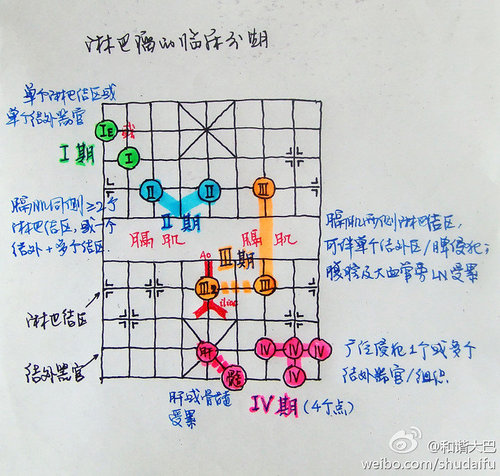 淋巴瘤的临床分期
单个淋巴结区或
单个结外器官
IE
或
I
I 期
II
II
III
II 期
膈肌同侧≥2个
淋巴结区,或一个
结外+多个结区
膈肌
膈肌
膈肌两侧淋巴结区,
可伴单个结外区/脾侵犯;
腹腔及大血管旁LN受累
Ao
III 期
III2
iliac
III
淋巴结区
结外器官
肝
髓
IV
IV
IV
IV
广泛侵犯1个或多个
结外器官/组织
肝或骨髓
受累
IV期(4个点)
@和谐大巴
weibo.com/shudaifu